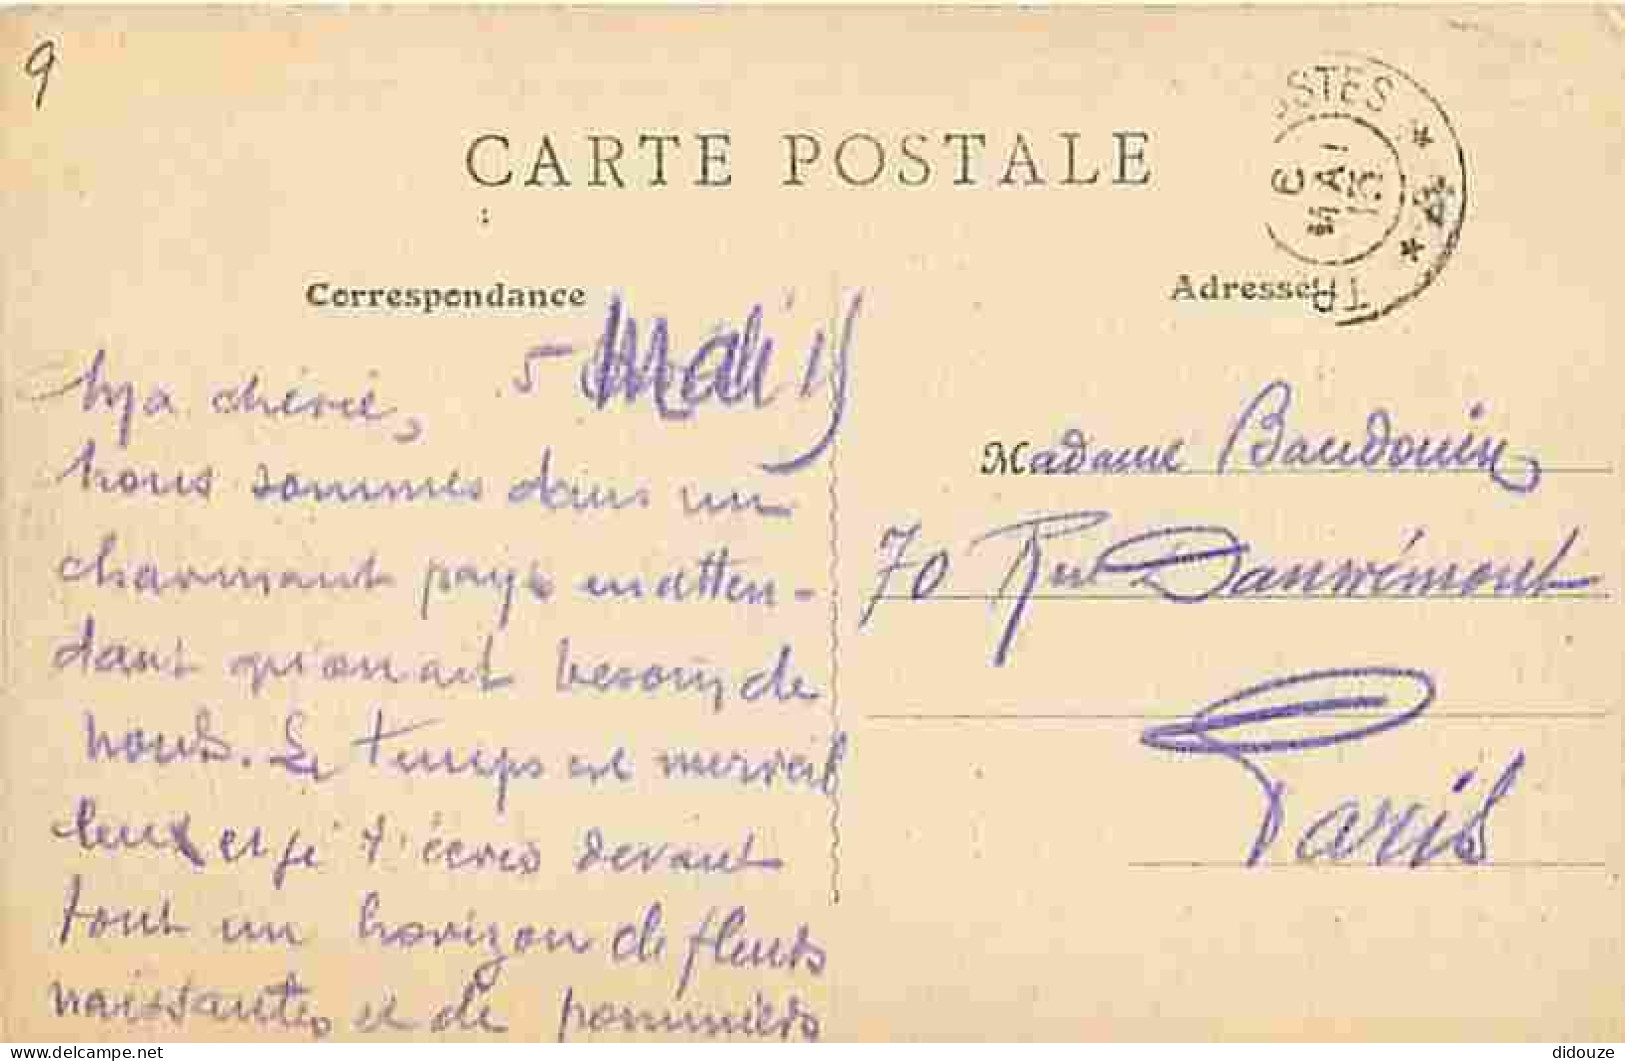 9
CARTE POSTALE
OSTES
6
MAI
15
Correspondance
Adresse
5 Mai 15
Ma chérie,
nous sommes dans un
charmant pays en atten-
dant qu'on ait besoin de
nous. Le temps est merveil
leux et je t'écris devant
tout un horizon de fleurs
naissantes et de pommiers
Madame Baudouin
70 Rue Danrémont
Paris
www.delcampe.net
didouze